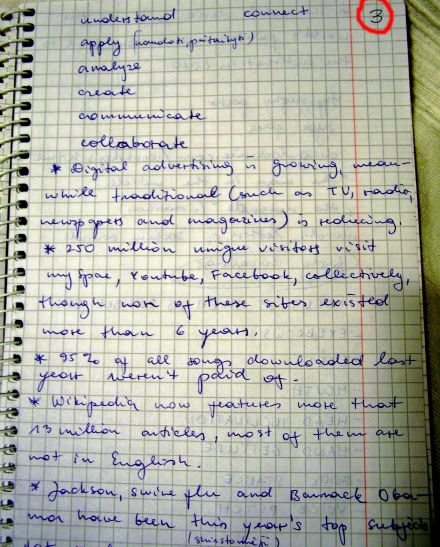 understand connect 3
apply (naudoti, pritaikyti)
analyze
create
communicate
collaborate
* Digital advertising is growing, mean-
while traditional (such as TV, radio,
newspapers and magazines) is reducing.
* 250 million unique visitors visit
myspac, Youtube, Facebook, collectively,
though non of these sites existed
more than 6 years.
* 95% of all songs downloaded last
year weren't paid of.
* Wikipedia now features more that
13 million articles, most of them are
not in English.
* Jackson, swine flu and Barrack Oba-
ma have been this year's top subjects